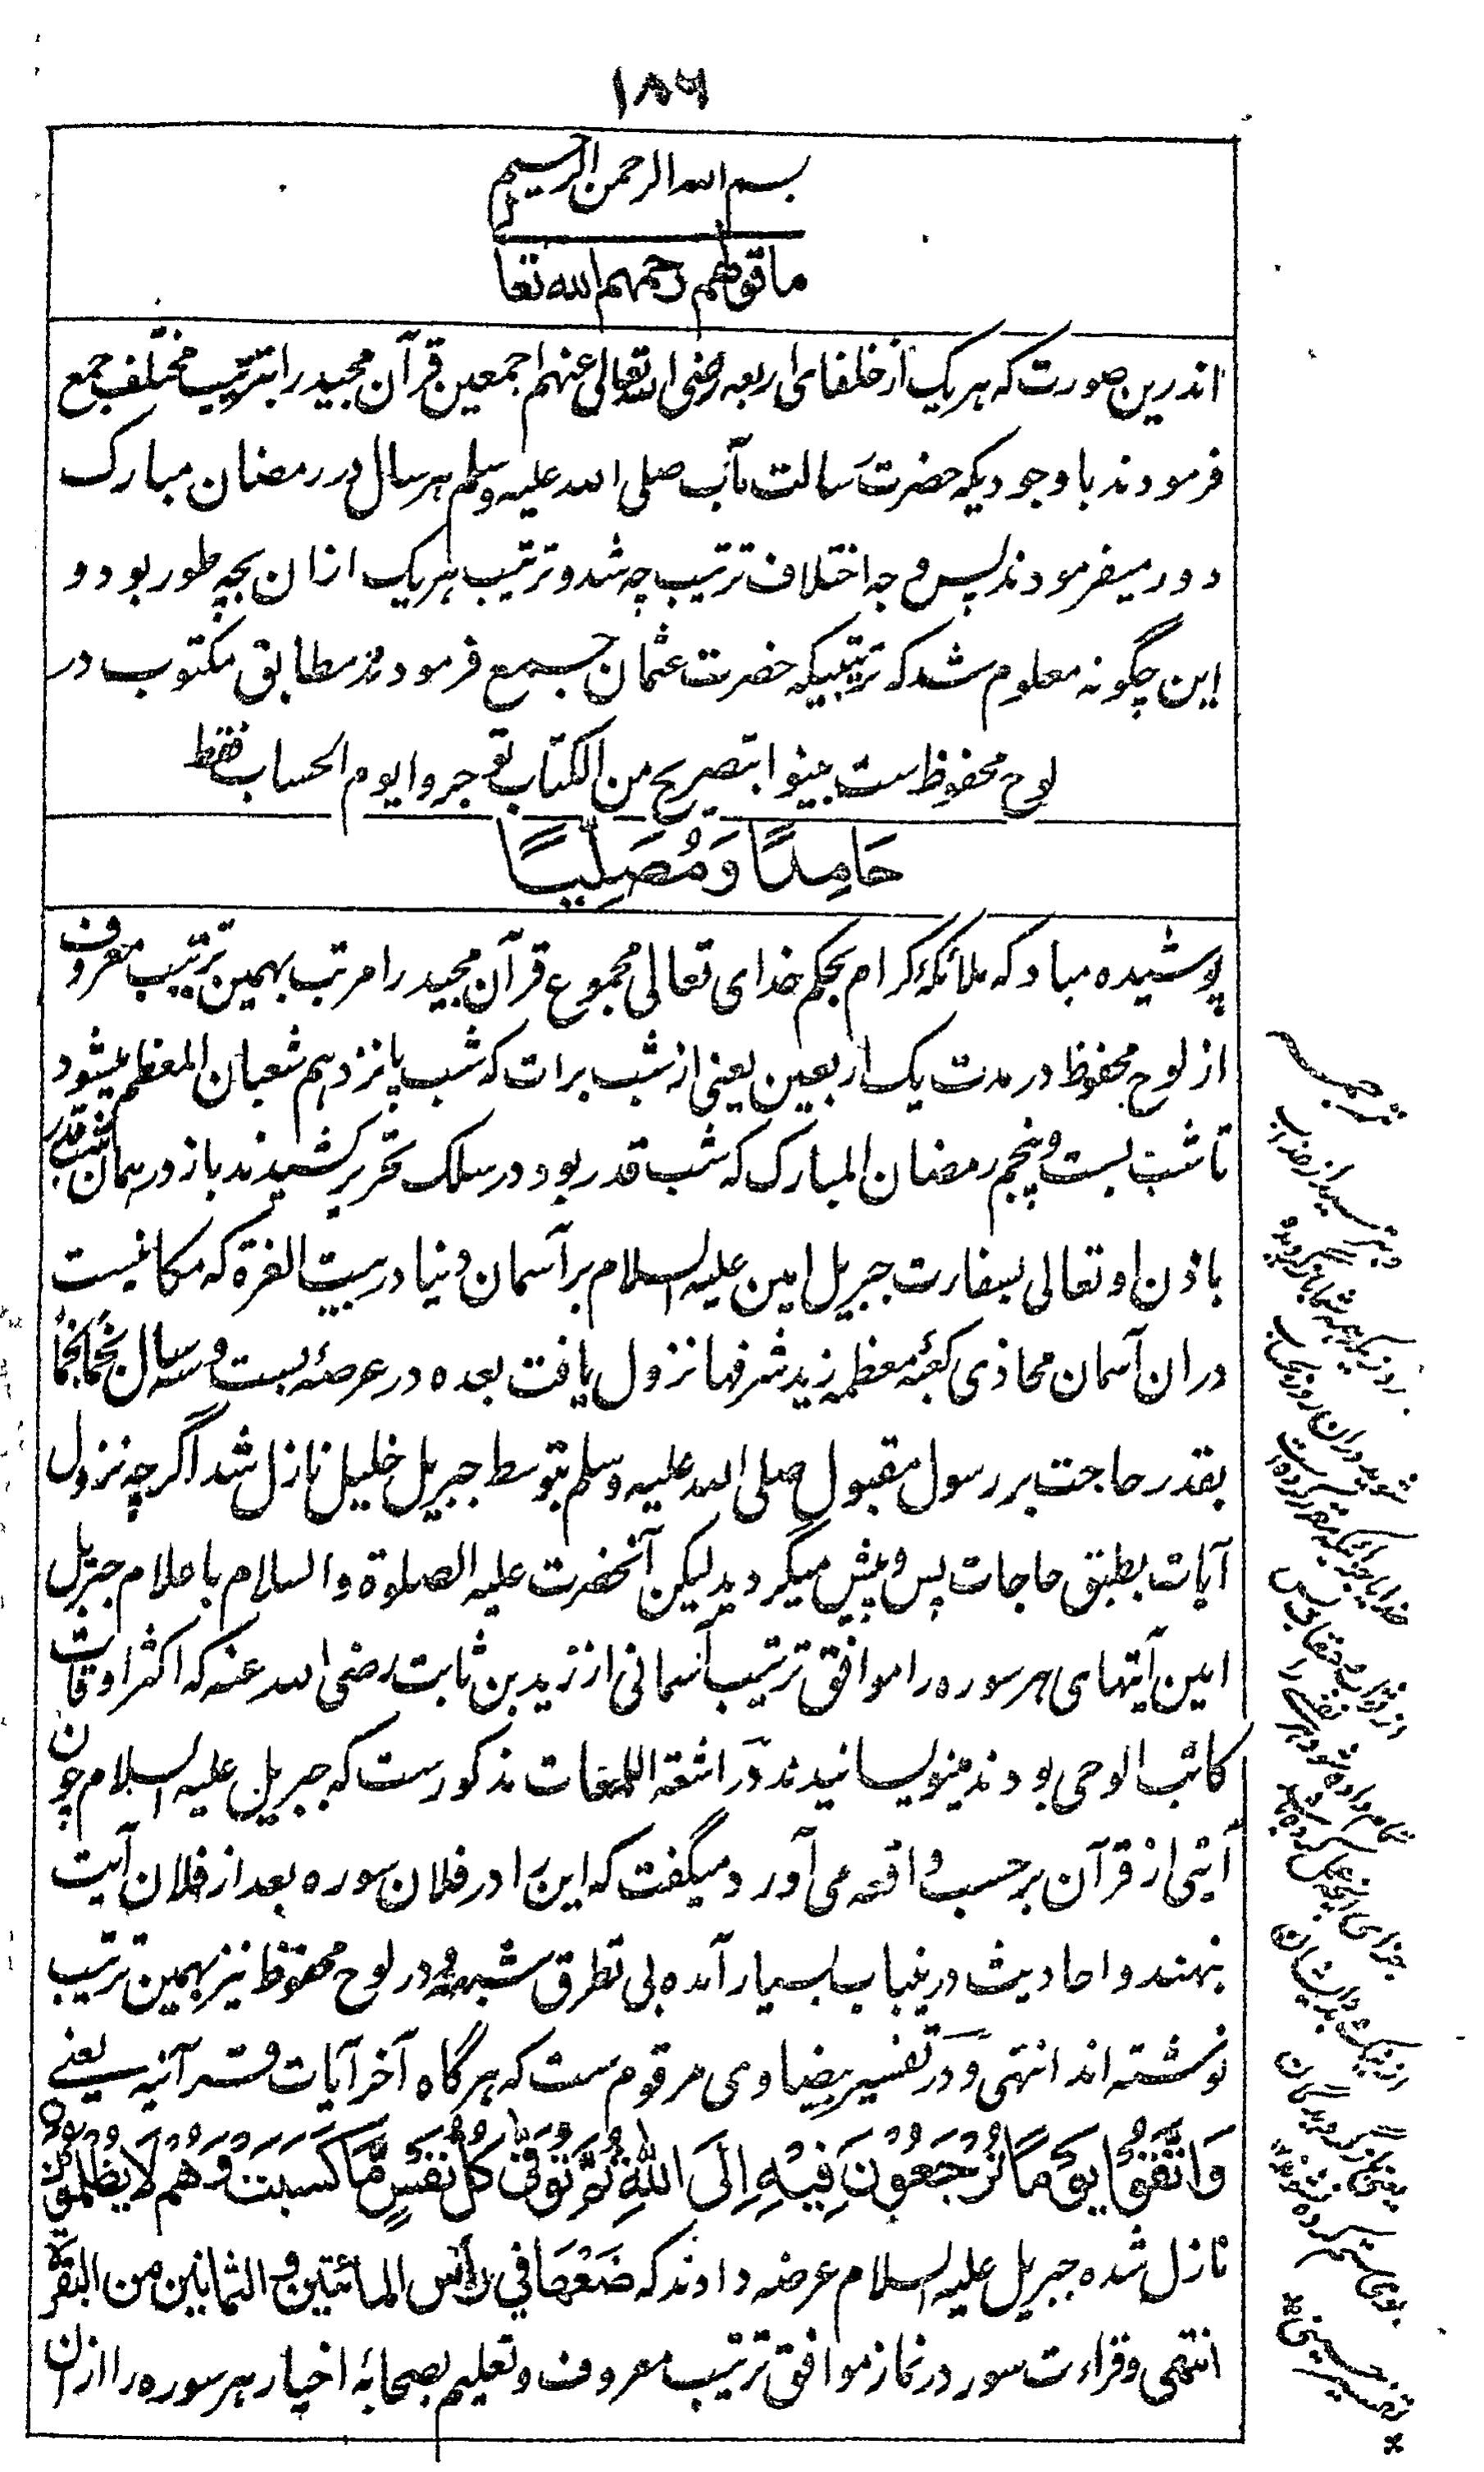 ۱۸۶
بسم الله الرحمن الرحیم
ما قولهم رحمهم الله تعا
اندرین صورت که هر یک از خلفای اربعه رضی الله تعالی عنهم اجمعین قرآن مجید را بترتیب مختلف جمع
فرمودند باوجودیکه حضرت رسالت مآب صلی الله علیه وسلم هر سال در رمضان مبارک
دور میفرمودند پس وجه اختلاف ترتیب چه شد و ترتیب هر یک ازان بچه طور بود و
این چگونه معلوم شد که ترتیبیکه حضرت عثمان جمع فرمودند مطابق مکتوب در
لوح محفوظ ست بینوا بتصریح من الکتاب توجروا یوم الحساب فقط
حَامِدًا وَمُصَلِّیًا
پوشیده مباد که ملائکهٔ کرام بحکم خدای تعالی مجموع قرآن مجید را مرتب بهمین ترتیب معروف
از لوح محفوظ در مدت یک اربعین یعنی از شب برات که شب پانزدهم شعبان المعظم میشود
تا شب بست و پنجم رمضان المبارک که شب قدر بود در سلک تحریر کشیدند باز در همان شب قدر
باذن او تعالی بسفارت جبریل امین علیه السلام بر آسمان دنیا در بیت العزة که مکانیست
دران آسمان محاذی کعبهٔ معظمه زید شرفها نزول یافت بعده در عرصهٔ بست و سه سال نجماً نجماً
بقدر حاجت بر رسول مقبول صلی الله علیه وسلم بتوسط جبریل خلیل نازل شد اگرچه نزول
آیات بطبق حاجات پس و پیش میگردید لیکن آنحضرت علیه الصلوة والسلام باعلام جبریل
امین آیتهای هر سوره را موافق ترتیب آسمانی از زید بن ثابت رضی الله عنه که اکثر اوقات
کاتب الوحی بودند مینویسانیدند در اشعة اللمعات مذکورست که جبریل علیه السلام چون
آیتی از قرآن برحسب واقعه می آورد میگفت که این را در فلان سوره بعد از فلان آیت
بنهند و احادیث درینباب بسیار آمده بی تطرق شبهه و در لوح محفوظ نیز بهمین ترتیب
نوشته اند انتهی و در تفسیر بیضاوی مرقوم ست که هرگاه آخر آیات قرآنیه یعنے
وَاتَّقُوْا یَوْمًا تُرْجَعُوْنَ فِیْهِ اِلَی اللّٰهِ ثُمَّ تُوَفّٰی کُلُّ نَفْسٍ مَّا کَسَبَتْ وَهُمْ لَا یُظْلَمُوْنَ
نازل شده جبریل علیه السلام عرضه دادند که ضَعْهَا فِي رَأْسِ المائتین والثمانین من البقرة
انتهی و قراءت سور در نماز موافق ترتیب معروف و تعلیم بصحابهٔ اخیار هر سوره را ازان
ترجمه
و بترسید از عذاب
روزیکه همه شما باز گردیده
شوید دران روز بجانب
از ثواب و عقاب پس
تمام داده شود هر نفس را
جزای آنچه کسب کرده باشد
تفسیر حسینی